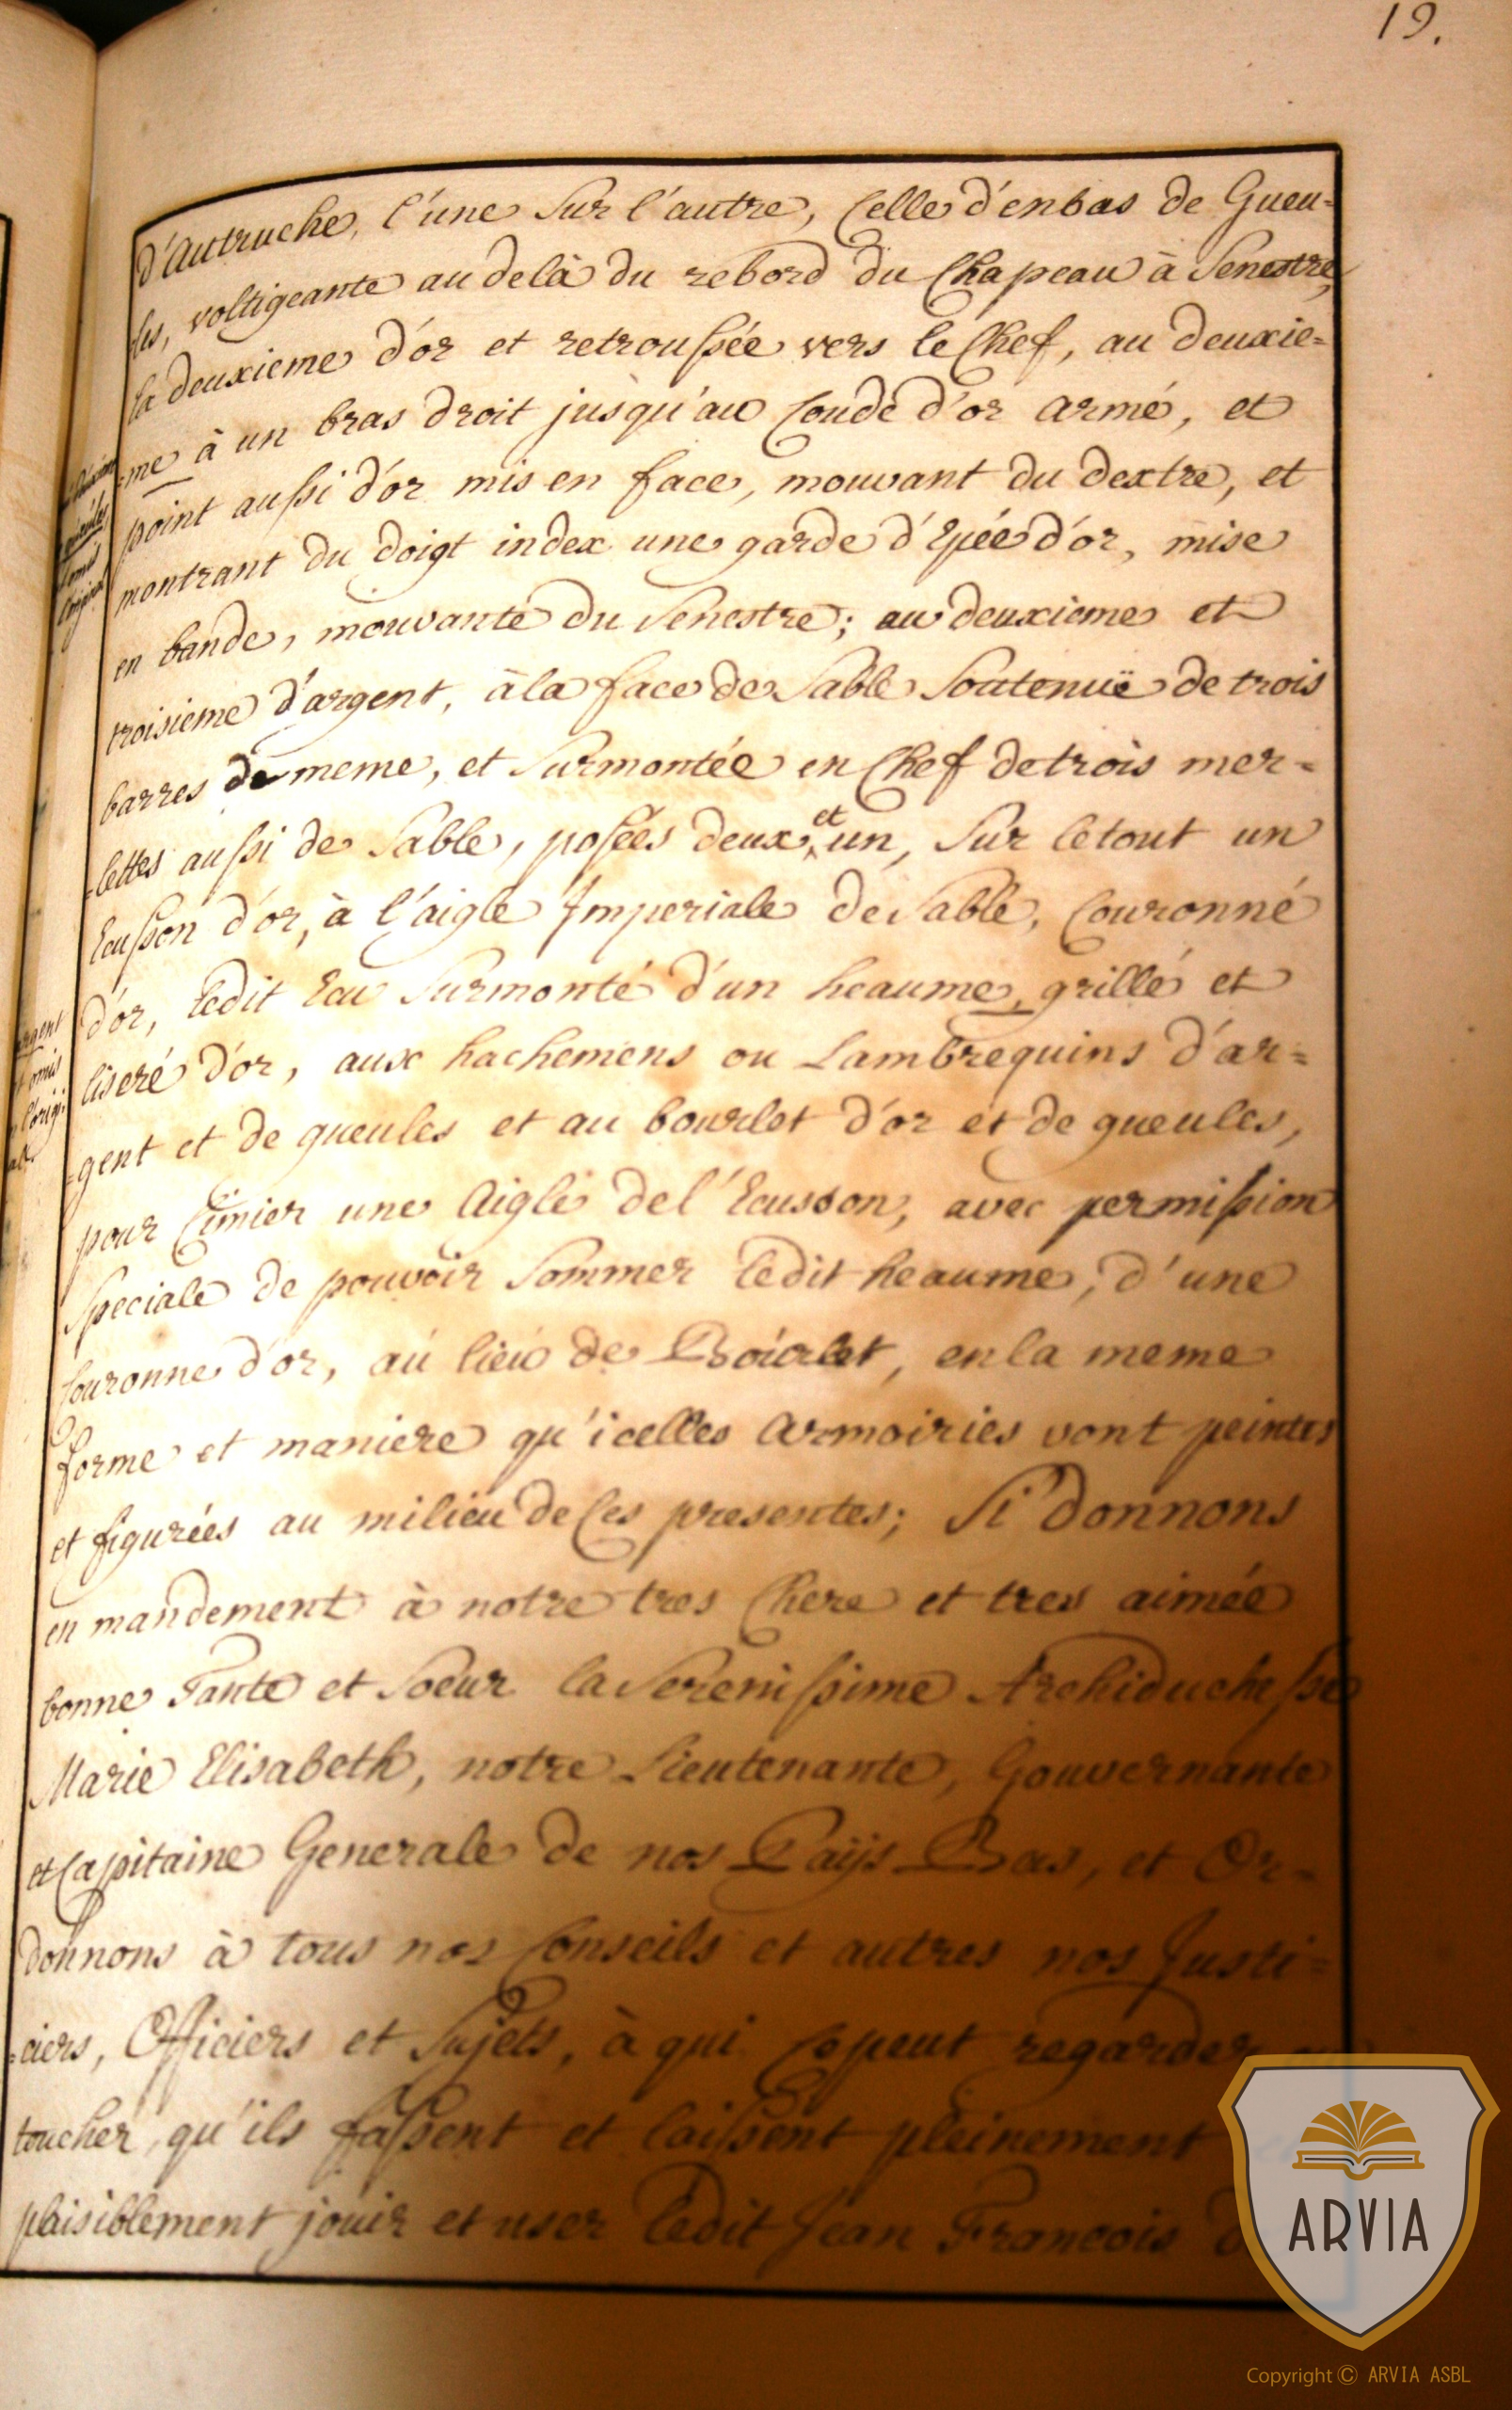 19.
d'Autruche, l'une sur l'autre, celle d'enbas de Gueu=
les, voltigeante au delà du rebord du Chapeau à Senestre,
la deuxieme d'or et retroussée vers le Chef, au deuxie=
=me à un bras droit jusqu'au Coude d'or armé, et
point aussi d'or mis en face, mouvant du dextre, et
montrant du doigt index une garde d'Epée d'or, mise
en bande, mouvante du Senestre; au deuxieme et
troisieme d'argent, à la face de Sable Soutenuë de trois
barres de meme, et Surmontée en Chef de trois mer=
=lettes aussi de Sable, posées deux et un, Sur le tout un
Ecusson d'or, à l'aigle Imperiale de Sable, Couronné
d'or, ledit Ecu Surmonté d'un heaume, grillé et
liseré d'or, aux hachemens ou Lambrequins d'ar=
=gent et de gueules et au bourlet d'or et de gueules,
pour Cimier une Aigle de l'Ecusson, avec permission
Speciale de pouvoir Sommer ledit heaume, d'une
Couronne d'or, au lieu de Bourlet, en la meme
forme et maniere qu'icelles Armoiries vont peintes
et figurées au milieu de Ces presentes; Si Donnons
en mandement à notre tres Chere et tres aimée
bonne Tante et Soeur la Serenissime Archiduchesse
Marie Elisabeth, notre Lieutenante, Gouvernante
et Capitaine Generale de nos Païjs Bas, et Or=
donnons à tous nos Conseils et autres nos Justi=
=ciers, Officiers et Sujets, à qui Ce peut regarder
toucher, qu'ils fassent et laissent pleinement
plaisiblement jouir et user ledit Jean Francois
argent
omis
ARVIA
Copyright © ARVIA ASBL